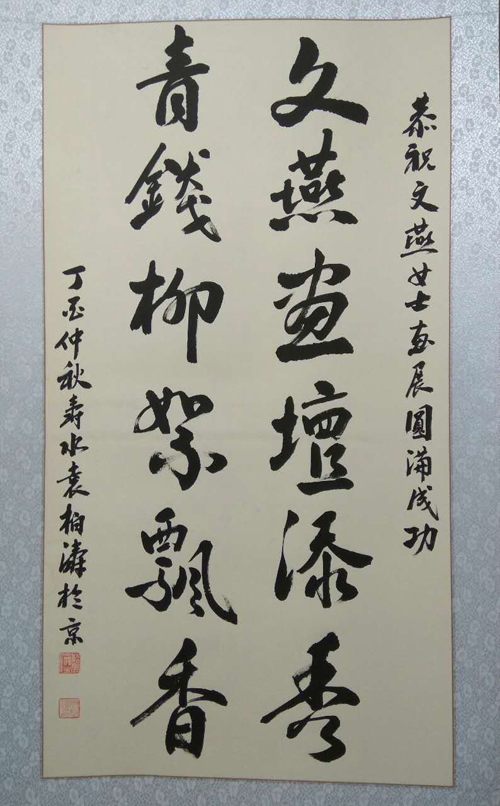 恭祝文燕女士画展圓满成功
文燕画壇添秀
青錢柳絮飄香
丁酉仲秋寿水袁柏濤於京